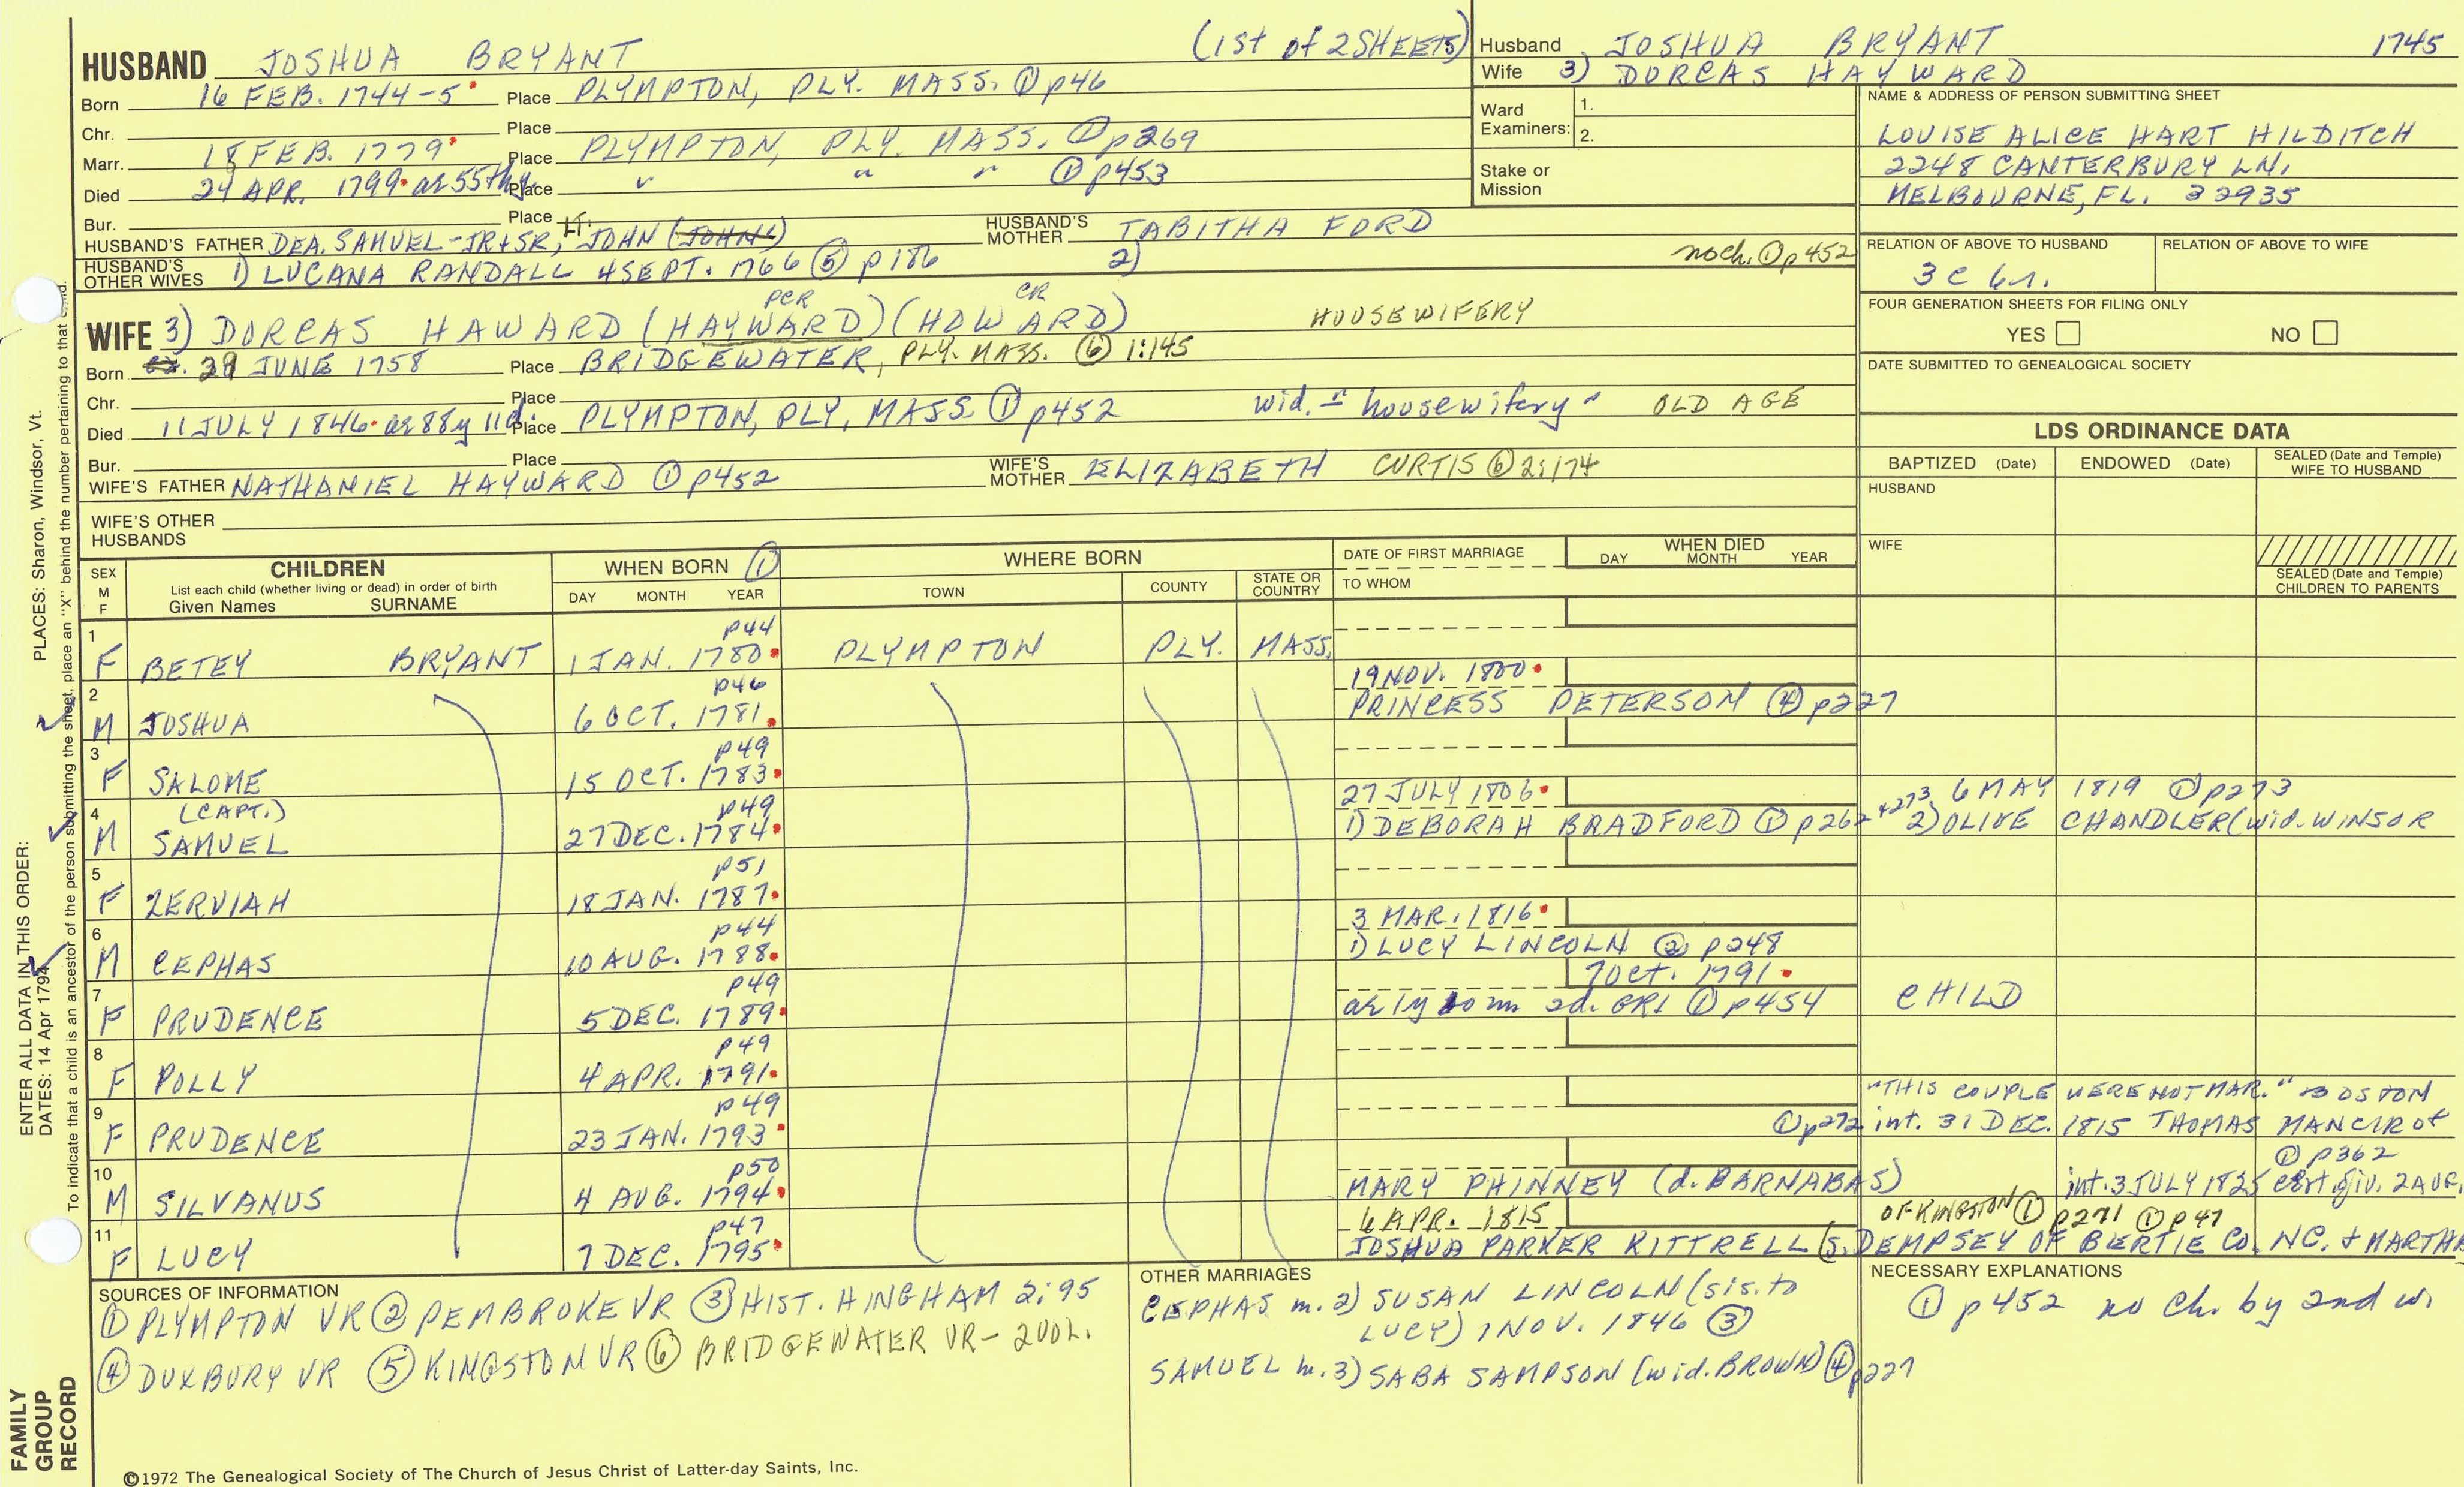 (1st of 2 SHEETS)
HUSBAND JOSHUA BRYANT
Born 16 FEB. 1744-5 Place PLYMPTON, PLY. MASS. ① p46
Chr. Place
Marr. 18 FEB. 1779 Place PLYMPTON, PLY. MASS. ① p269
Died 24 APR. 1799 ae 55thy Place " " " ① p453
Bur. Place
HUSBAND'S FATHER DEA. SAMUEL-JR+SR, LT. JOHN (JOHN) HUSBAND'S MOTHER TABITHA FORD
HUSBAND'S OTHER WIVES 1) LUCANA RANDALL 4 SEPT. 1766 ⑤ p186 2) no ch. ① p452
PCR CR
WIFE 3) DORCAS HAWARD (HAYWARD) (HOWARD) HOUSEWIFERY
Born 29 JUNE 1758 Place BRIDGEWATER, PLY. MASS. ⑥ 1:145
Chr. Place
Died 11 JULY 1846 ae 88y 11d. Place PLYMPTON, PLY, MASS. ① p452 wid. - "housewifery" OLD AGE
Bur. Place
WIFE'S FATHER NATHANIEL HAYWARD ① p452 WIFE'S MOTHER ELIZABETH CURTIS ⑥ 2:174
WIFE'S OTHER HUSBANDS
Husband JOSHUA BRYANT 1745
Wife 3) DORCAS HAYWARD
Ward Examiners: 1.
2.
Stake or Mission
NAME & ADDRESS OF PERSON SUBMITTING SHEET
LOUISE ALICE HART HILDITCH
2248 CANTERBURY LN.
MELBOURNE, FL. 32935
RELATION OF ABOVE TO HUSBAND RELATION OF ABOVE TO WIFE
3 c 6 r.
FOUR GENERATION SHEETS FOR FILING ONLY
YES NO
DATE SUBMITTED TO GENEALOGICAL SOCIETY
LDS ORDINANCE DATA
BAPTIZED (Date) ENDOWED (Date) SEALED (Date and Temple) WIFE TO HUSBAND
HUSBAND
WIFE
SEALED (Date and Temple) CHILDREN TO PARENTS
SEX M F
CHILDREN
List each child (whether living or dead) in order of birth
Given Names SURNAME
WHEN BORN ①
DAY MONTH YEAR
WHERE BORN
TOWN COUNTY STATE OR COUNTRY
DATE OF FIRST MARRIAGE
TO WHOM
WHEN DIED
DAY MONTH YEAR
p44
1 F BETEY BRYANT 1 JAN. 1780 PLYMPTON PLY. MASS.
p46 19 NOV. 1800
2 M JOSHUA 6 OCT. 1781 PRINCESS PETERSON ④ p227
p49
3 F SALOME 15 OCT. 1783
(CAPT.) p49 27 JULY 1806 6 MAY 1819 ① p273
4 M SAMUEL 27 DEC. 1784 1) DEBORAH BRADFORD ① p262 +273 2) OLIVE CHANDLER (wid. WINSOR
p51
5 F ZERVIAH 18 JAN. 1787
p44 3 MAR. 1816
6 M CEPHAS 10 AUG. 1788 1) LUCY LINCOLN ② p248
p49 7 Oct. 1791
7 F PRUDENCE 5 DEC. 1789 ae 1y 10 m 2d. GR1 ① p454 CHILD
p49
8 F POLLY 4 APR. 1791
p49 "THIS COUPLE WERE NOT MAR." BOSTON
9 F PRUDENCE 23 JAN. 1793 ① p272 int. 31 DEC. 1815 THOMAS MANCIR of
p50 ① p362
10 M SILVANUS 4 AUG. 1794 MARY PHINNEY (d. BARNABAS) int. 3 JULY 1825 cert. giv. 2 AUG.
p47 6 APR. 1815 OF KINGSTON ① p271 ① p47
11 F LUCY 7 DEC. 1795 JOSHUA PARKER KITTRELL (s. DEMPSEY OF BERTIE CO. NC. + MARTHA
SOURCES OF INFORMATION
① PLYMPTON VR ② PEMBROKE VR ③ HIST. HINGHAM 2:95
④ DUXBURY VR ⑤ KINGSTON VR ⑥ BRIDGEWATER VR - 2 VOL.
OTHER MARRIAGES
CEPHAS m. 2) SUSAN LINCOLN (sis. to
LUCY) 1 NOV. 1846 ③
SAMUEL m. 3) SABA SAMPSON (wid. BROWN) ④ p227
NECESSARY EXPLANATIONS
① p452 no ch. by 2nd w.
©1972 The Genealogical Society of The Church of Jesus Christ of Latter-day Saints, Inc.
FAMILY GROUP RECORD
ENTER ALL DATA IN THIS ORDER:
DATES: 14 Apr 1794
PLACES: Sharon, Windsor, Vt.
To indicate that a child is an ancestor of the person submitting the sheet, place an "X" behind the number pertaining to that child.